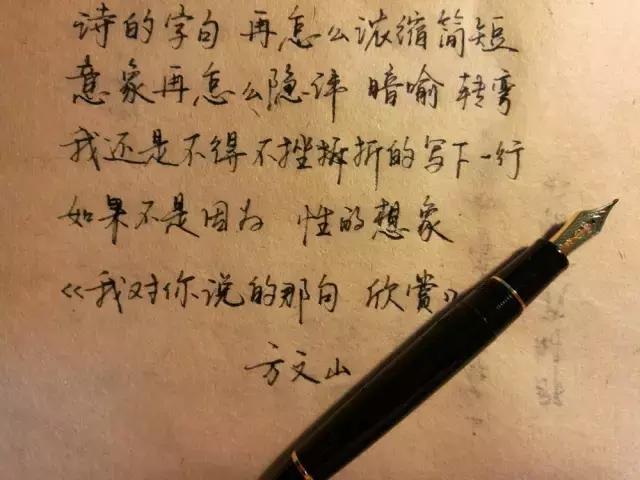 诗的字句 再怎么浓缩简短
意象再怎么隐讳 暗喻 转弯
我还是不得不挫折的写下一行
如果不是因为 性的想象
《我对你说的那句 欣赏》
方文山